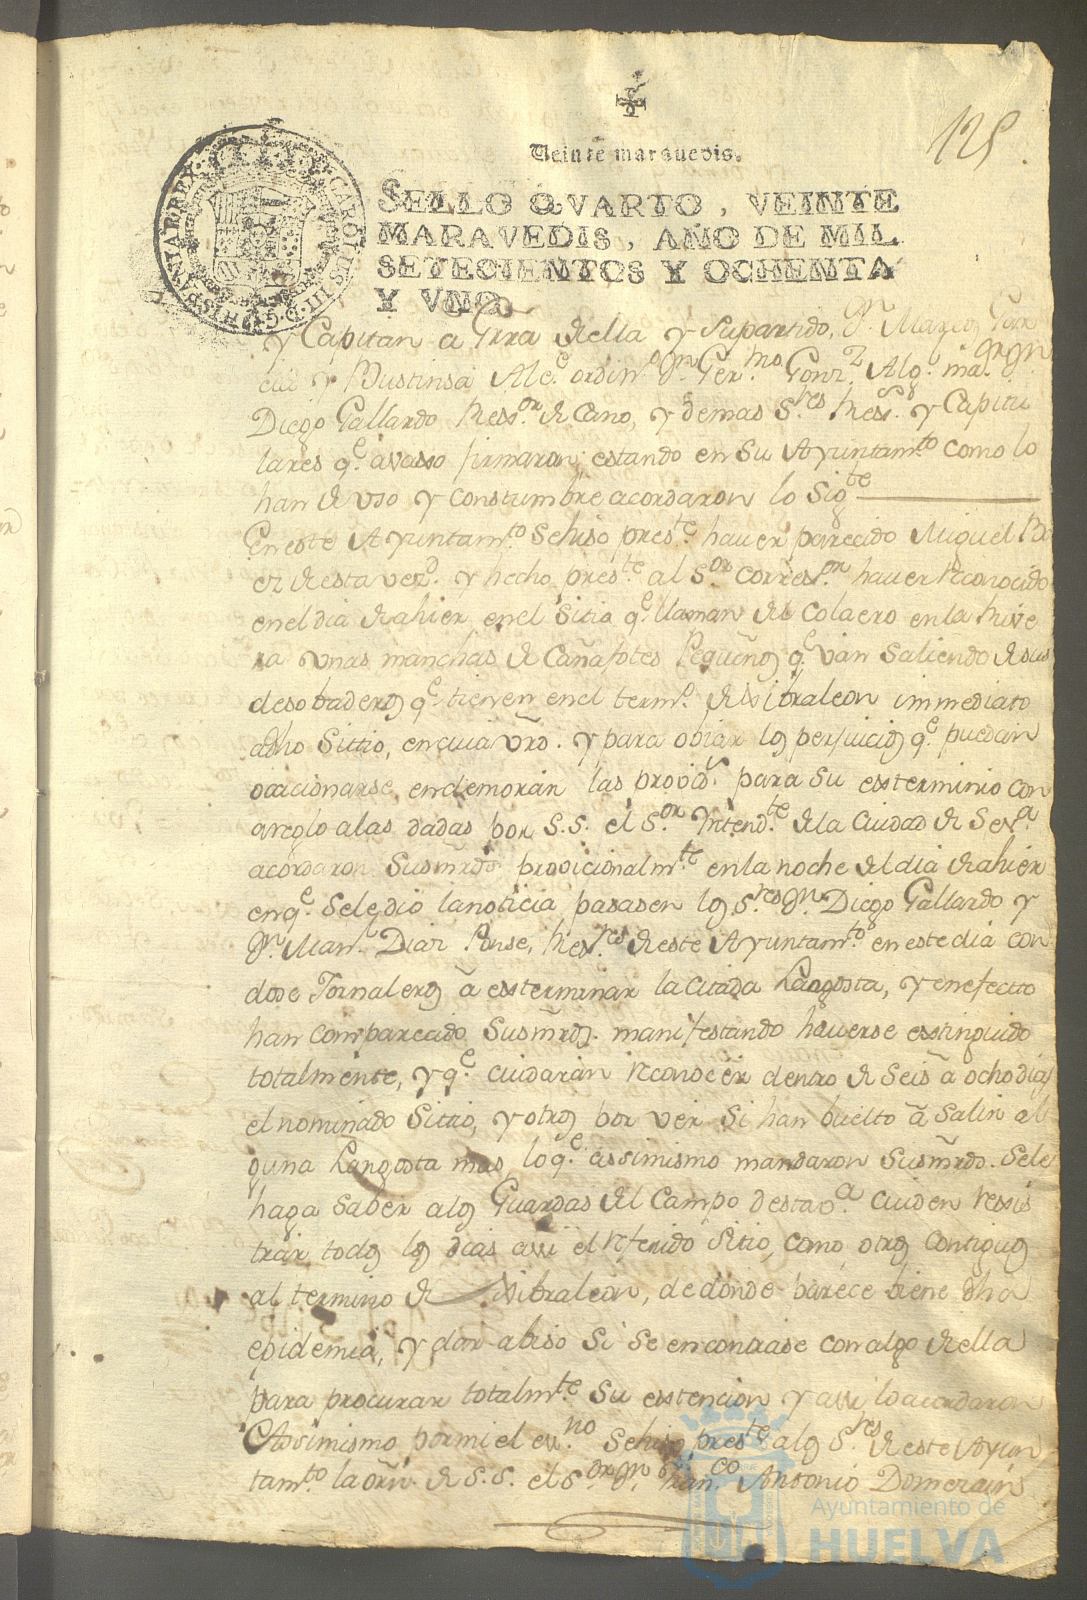 125
Veinte maravedis.
SELLO QVARTO, VEINTE
MARAVEDIS, AÑO DE MIL
SETECIENTOS Y OCHENTA
Y VNO
CAROLUS III D.G. HISPANIAR. REX
y Capitan a Grra de ella y supartido, Dn. Marcos
y Bustinsa Alce. ordino. Dn. Germo. Gonz. Alg. mar. Dn.
Diego Gallardo Ressor. de Cano, y demas Sres. Ress. y Capitu
lares qe. avasso firmaron estando en su Ayuntamto. como lo
han de uso y constumbre acordaron lo Sigte
En este Ayuntamto. se hiso preste. haver parecido Miguel
de esta vezd. y hecho preste. al Sor. corresor. haver reconocido
en el dia de ahier en el Sitio qe. llaman del Colaero en la Rive
ra unas manchas de Cañafotes Pequeños qe. van saliendo de sus
desobaderos qe. tienen en el termo. de Gibraleon immediato
a dho Sitio, en cuia vrd. y para obiar los perjuicios qe. puedan
ocacionarse en demorar las provids. para su exterminio con
areglo a las dadas por S.S. el Sor. Intendte. de la Ciudad de Seva.
acordaron Susmrds. provicionalmte. en la noche del dia de ahier
en qe. se le dio la noticia pasasen los Sres. Dn. Diego Gallardo y
Dn. Man. Diaz Ponse, Resres. de este Ayuntamto. en este dia con
dose Jornaleros â exterminar la citada Langosta, y en efecto
han comparecido Susmrds. manifestando haverse esstinguido
totalmente, y qe. cuidarán reconoser dentro de Seis â ocho dias
el nominado Sitio, y otros por ver si han buelto â salir al
guna Langosta mas lo qe. assimismo mandaron Susmrds. se le
haga saber a los Guardas del Campo desta va. cuiden ressis
trar todos los dias assi el referido Sitio, como otros contiguos
al termino de Gibraleon, de donde parece biene dha
epidemia, y dar abiso si se encontrase con algo de ella
para procurar totalmte. su esstencion y assi lo acordaron
Assimismo por mi el esno. se hiso preste. a los Sres. de este Ayun
tamto. la orn. de S.S. el Sor. Dn. Franco. Antonio Domezain
Ayuntamiento de
HUELVA